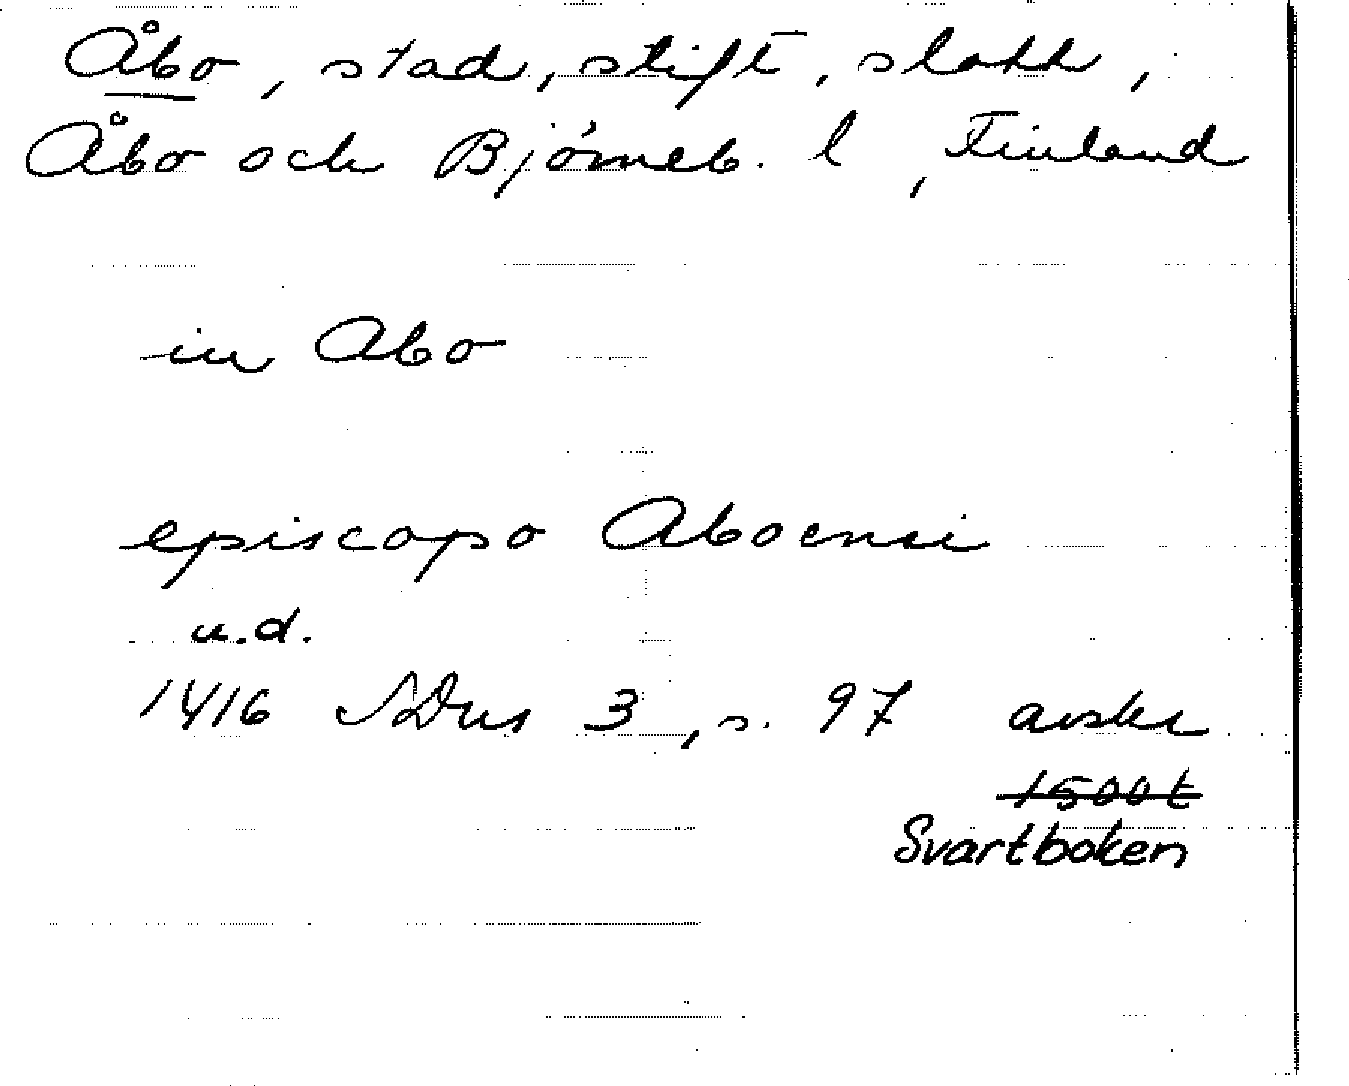 Åbo, stad, stift, slott,
Åbo och Björneb. l, Finland
in Abo
episcopo Aboensi
u.d.
1416 SDns 3, s. 97 avskr
1500t
Svartboken